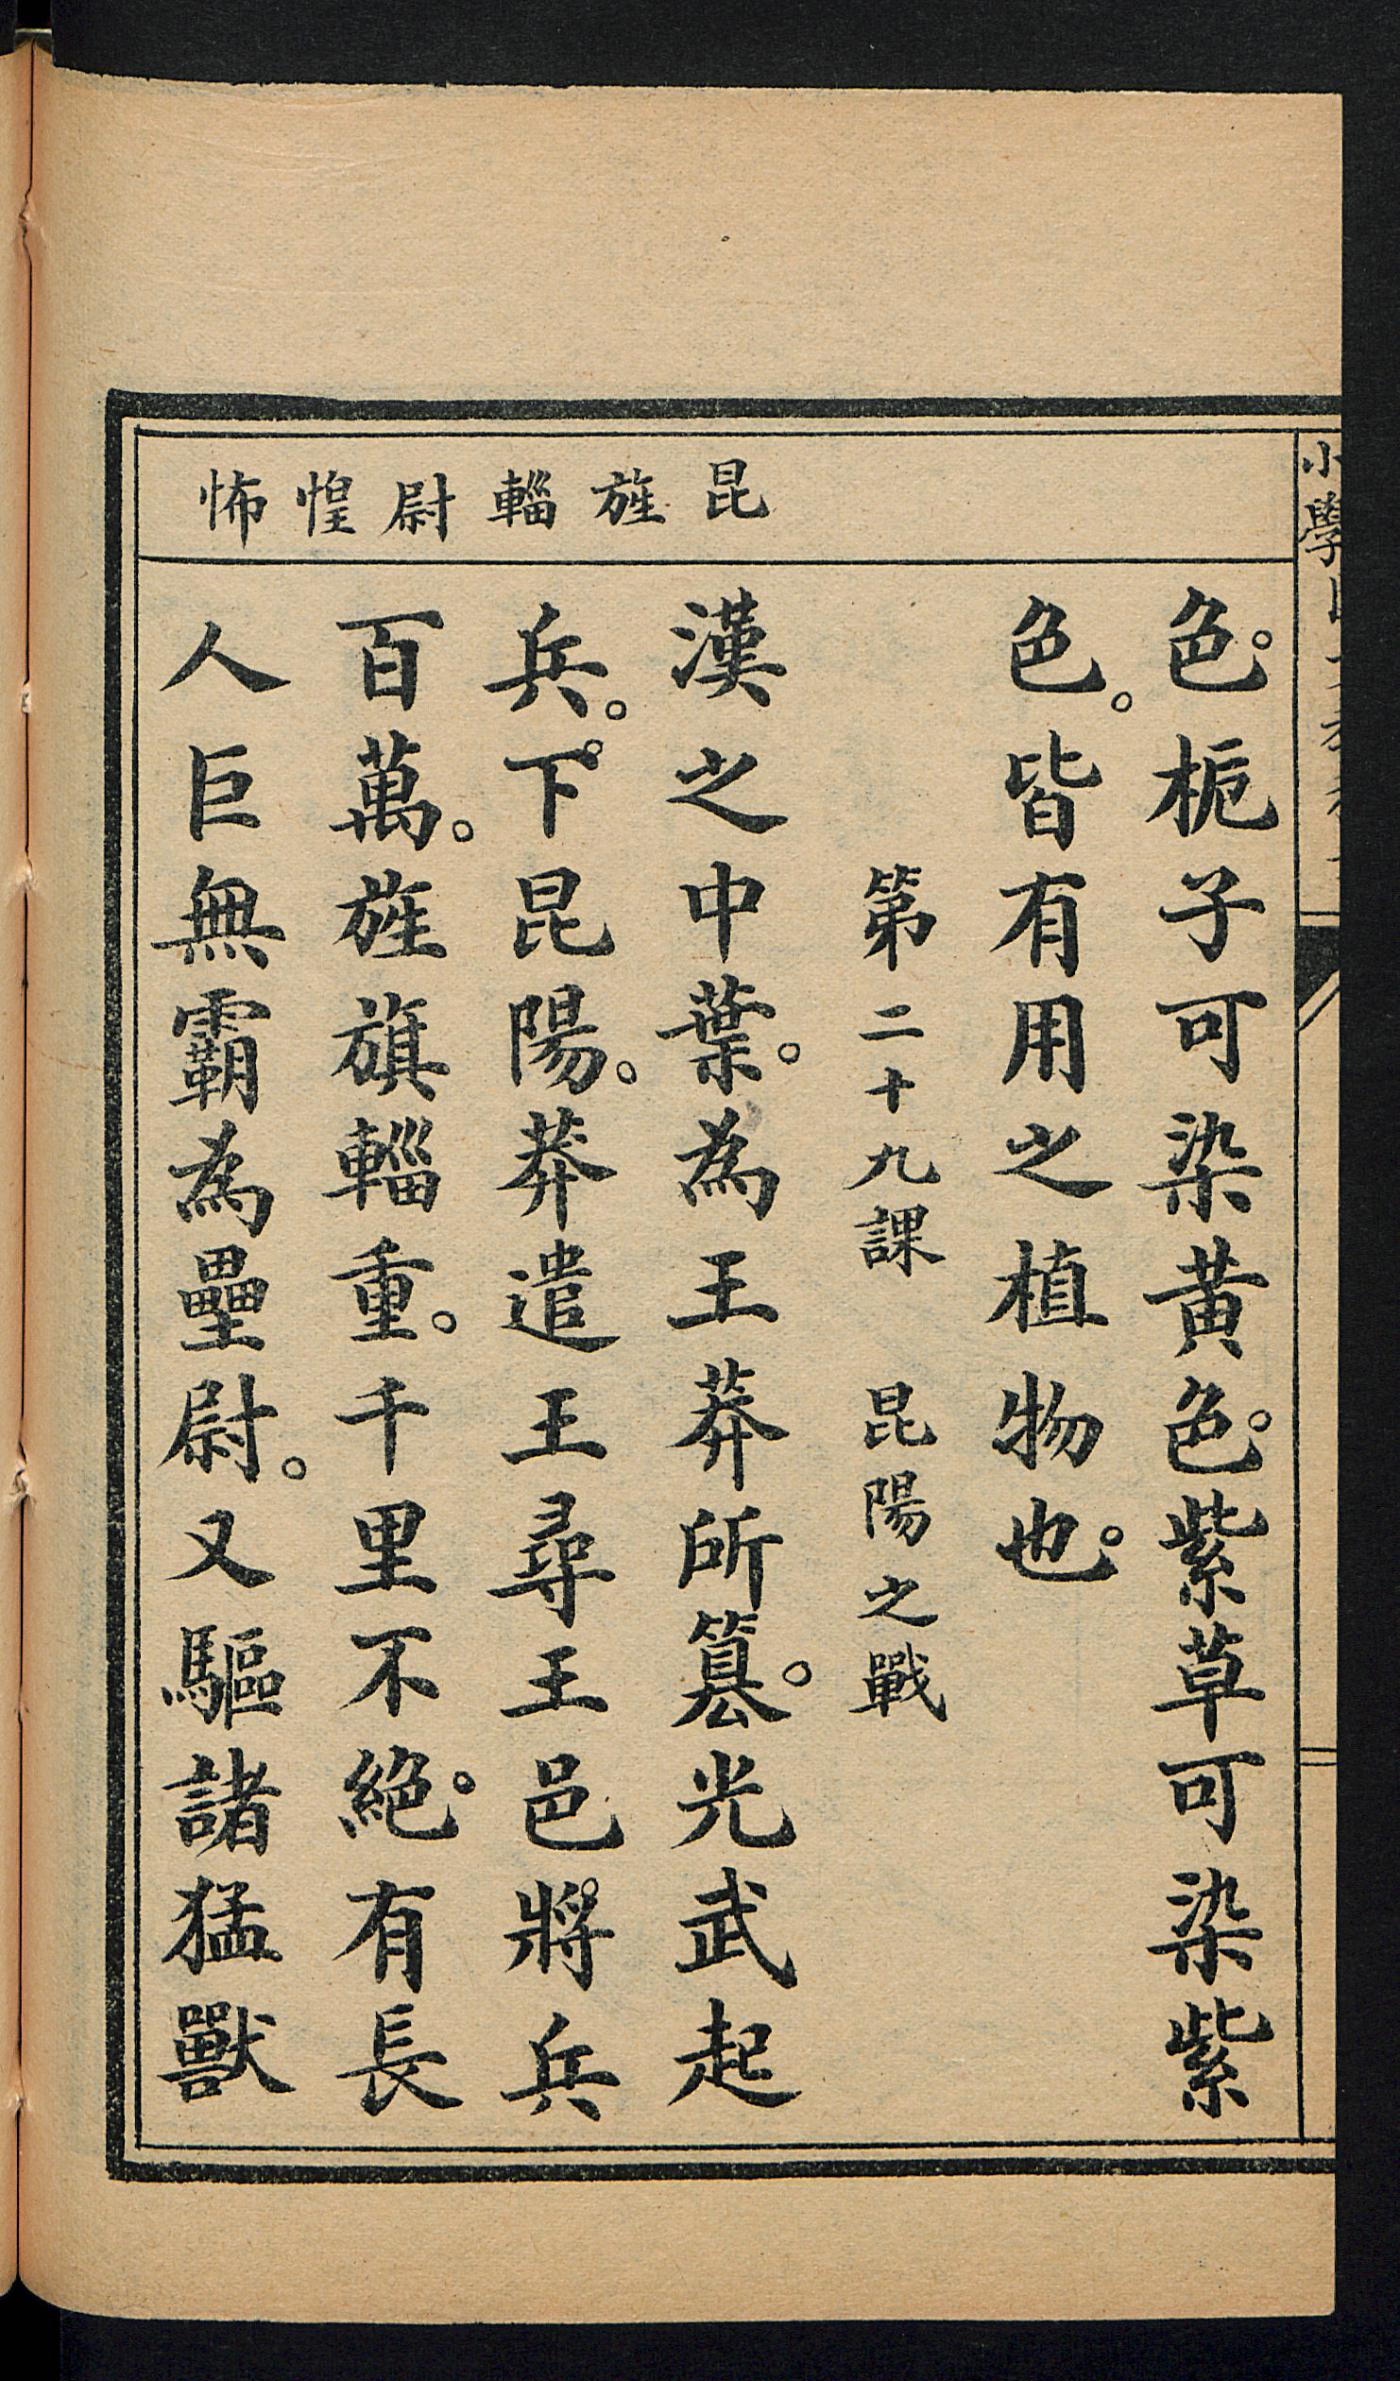 小學
昆旌輜尉惶怖
色。梔子可染黄色。紫草可染紫
色。皆有用之植物也。
第二十九課 昆陽之戰
漢之中葉。為王莽所篡。光武起
兵。下昆陽。莽遣王尋王邑將兵
百萬。旌旗輜重。千里不絕。有長
人巨無霸為壘尉。又驅諸猛獸